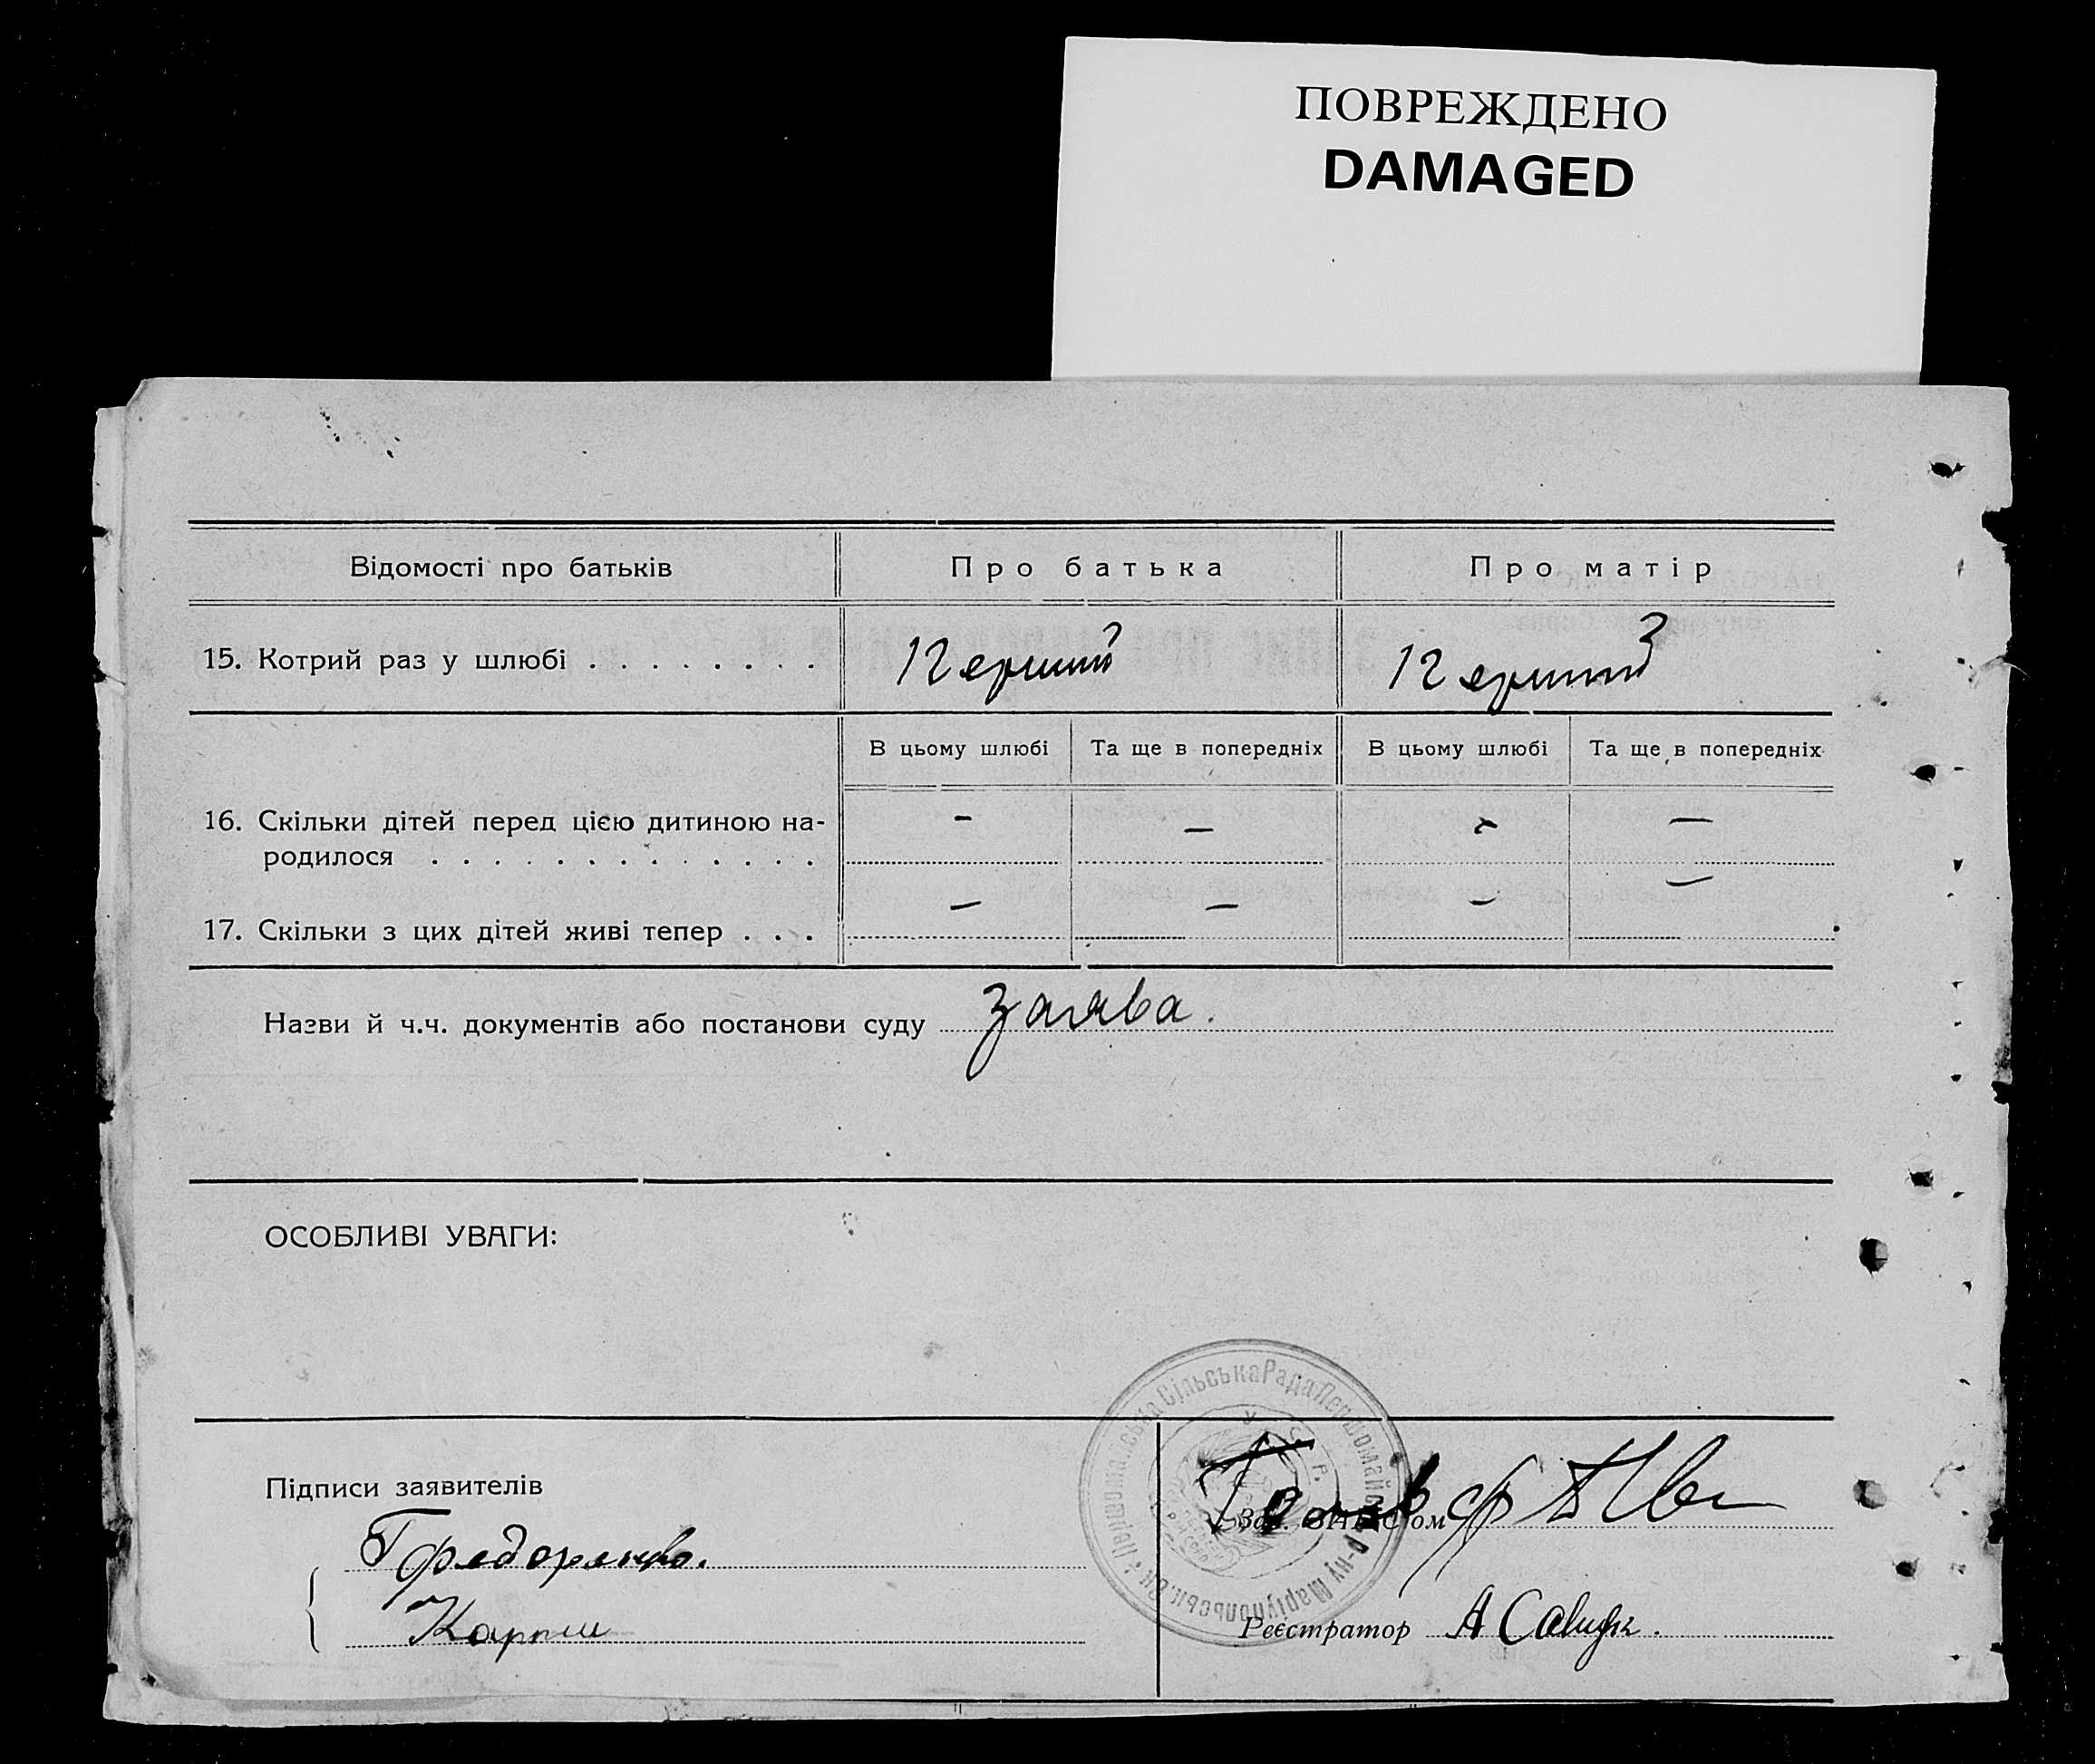 ПОВРЕЖДЕНО
DAMAGED
Відомості про батьків
Про батька
Про матір
15. Котрий раз у шлюбі . . . . . . . .
Перший
Перший
В цьому шлюбі
Та ще в попередніх
В цьому шлюбі
Та ще в попередніх
16. Скільки дітей перед цією дитиною на-
родилося . . . . . . . . . . . . .
- — - —
17. Скільки з цих дітей живі тепер . . .
— — — —
Назви й ч.ч. документів або постанови суду заява.
ОСОБЛИВІ УВАГИ:
Сільська Рада Першомайськ р-ну Маріупольськ.
Підписи заявителів
Зав. ЗАГС'ом
Реєстратор